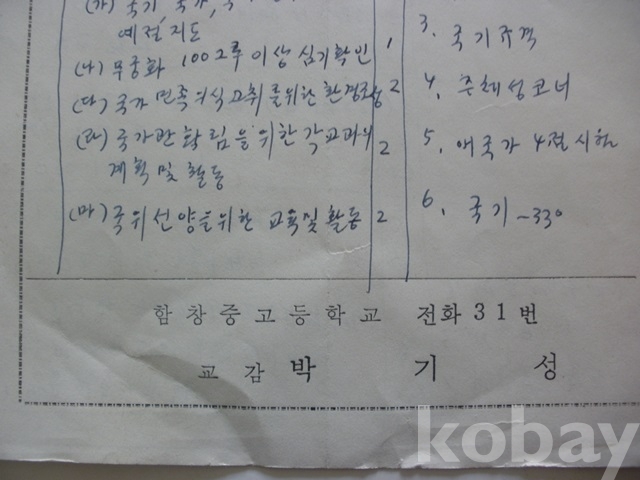 (가) 국기, 국가, 국
예절지도
(나) 무궁화 100그루 이상 심기확인 1
(다) 국가 민족의식 고취를위한 환경조성 2
(라) 국가관 확립을 위한 각교과위 2
계획 및 활동
(마) 국위선양을위한 교육및활동 2
3. 국기규격
4. 주체성코너
5. 애국가 4절 시험
6. 국기 -330
함창중고등학교 전화 31번
교감 박 기 성
kobay